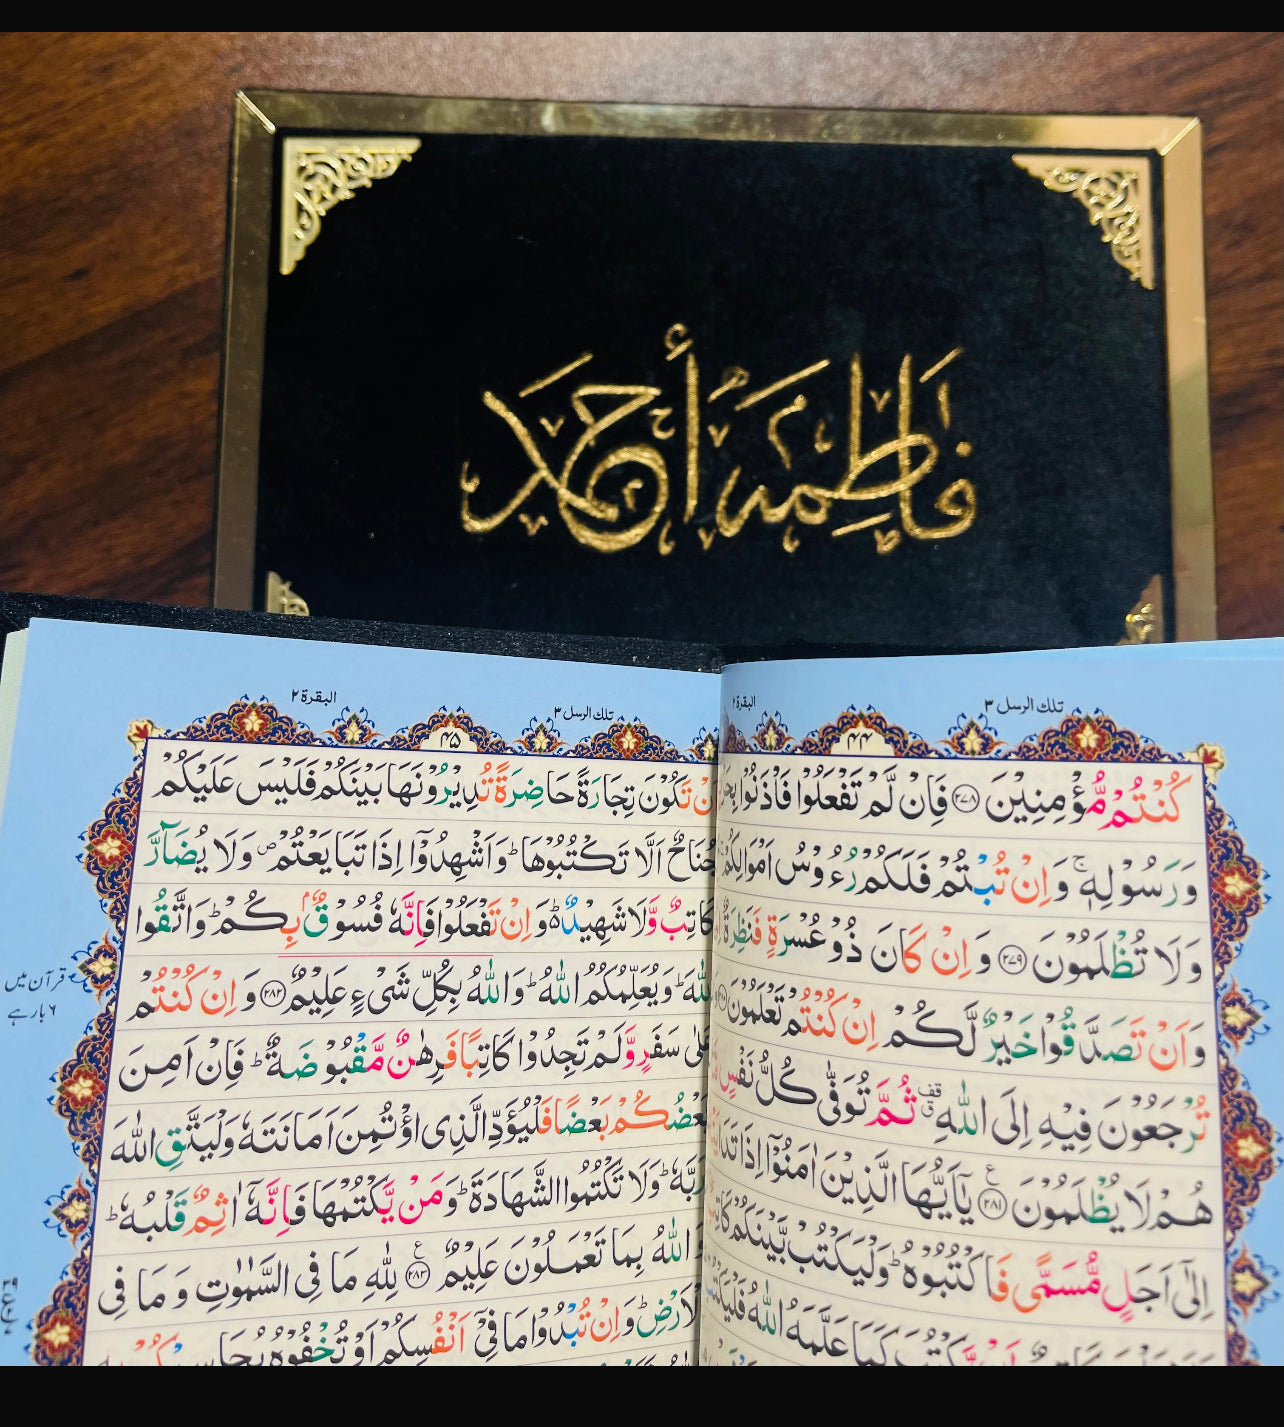 فَاطِمَہ أَحمَد
تلك الرسل ٣
البقرة ٢
٤٤
كُنْتُمْ مُّؤْمِنِيْنَ ﴿٢٧٨﴾ فَاِنْ لَّمْ تَفْعَلُوْا فَاْذَنُوْا
وَرَسُوْلِهٖ ۚ وَاِنْ تُبْتُمْ فَلَكُمْ رُءُوْسُ اَمْوَالِكُمْ
وَلَا تُظْلَمُوْنَ ﴿٢٧٩﴾ وَاِنْ كَانَ ذُوْ عُسْرَةٍ فَنَظِرَةٌ
وَاَنْ تَصَدَّقُوْا خَيْرٌ لَّكُمْ اِنْ كُنْتُمْ تَعْلَمُوْنَ
تُرْجَعُوْنَ فِيْهِ اِلَى اللّٰهِ ۗ ثُمَّ تُوَفّٰى كُلُّ نَفْسٍ
هُمْ لَا يُظْلَمُوْنَ ﴿٢٨١﴾ يٰۤاَيُّهَا الَّذِيْنَ اٰمَنُوْۤا اِذَا
اِلٰۤى اَجَلٍ مُّسَمًّى فَاكْتُبُوْهُ ؕ وَلْيَكْتُبْ بَّيْنَكُمْ
كَمَا عَلَّمَهُ اللّٰهُ
تلك الرسل ٣
البقرة ٢
٤٥
تَكُوْنَ تِجَارَةً حَاضِرَةً تُدِيْرُوْنَهَا بَيْنَكُمْ فَلَيْسَ عَلَيْكُمْ
جُنَاحٌ اَلَّا تَكْتُبُوْهَا ؕ وَاَشْهِدُوْۤا اِذَا تَبَايَعْتُمْ ۪ وَلَا يُضَآرَّ
كَاتِبٌ وَّلَا شَهِيْدٌ ؕ۬ وَاِنْ تَفْعَلُوْا فَاِنَّهٗ فُسُوْقٌۢ بِكُمْ ؕ وَاتَّقُوا
اللّٰهَ ؕ وَيُعَلِّمُكُمُ اللّٰهُ ؕ وَاللّٰهُ بِكُلِّ شَىْءٍ عَلِيْمٌ ﴿٢٨٢﴾ وَاِنْ كُنْتُمْ
عَلٰى سَفَرٍ وَّلَمْ تَجِدُوْا كَاتِبًا فَرِهٰنٌ مَّقْبُوْضَةٌ ؕ فَاِنْ اَمِنَ
بَعْضُكُمْ بَعْضًا فَلْيُؤَدِّ الَّذِى اؤْتُمِنَ اَمَانَتَهٗ وَلْيَتَّقِ اللّٰهَ
رَبَّهٗ ؕ وَلَا تَكْتُمُوا الشَّهَادَةَ ؕ وَمَنْ يَّكْتُمْهَا فَاِنَّهٗۤ اٰثِمٌ قَلْبُهٗ ؕ
اللّٰهُ بِمَا تَعْمَلُوْنَ عَلِيْمٌ ﴿٢٨٣﴾ لِلّٰهِ مَا فِى السَّمٰوٰتِ وَمَا فِى
الْاَرْضِ ؕ وَاِنْ تُبْدُوْا مَا فِىْۤ اَنْفُسِكُمْ اَوْ تُخْفُوْهُ
قرآن میں
۶ بار ہے